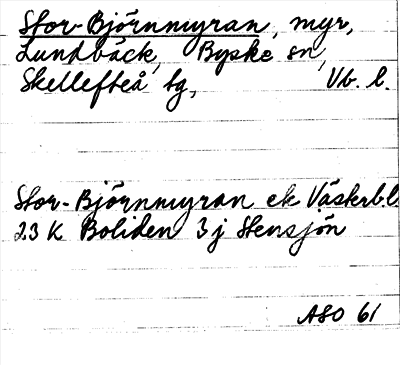 Stor-Björnmyran, myr,
Lundbäck, Byske sn,
Skellefteå tg, Vb. l.
Stor-Björnmyran ek Västerb.l.
23 K Boliden 3 j Stensjön
ASO 61